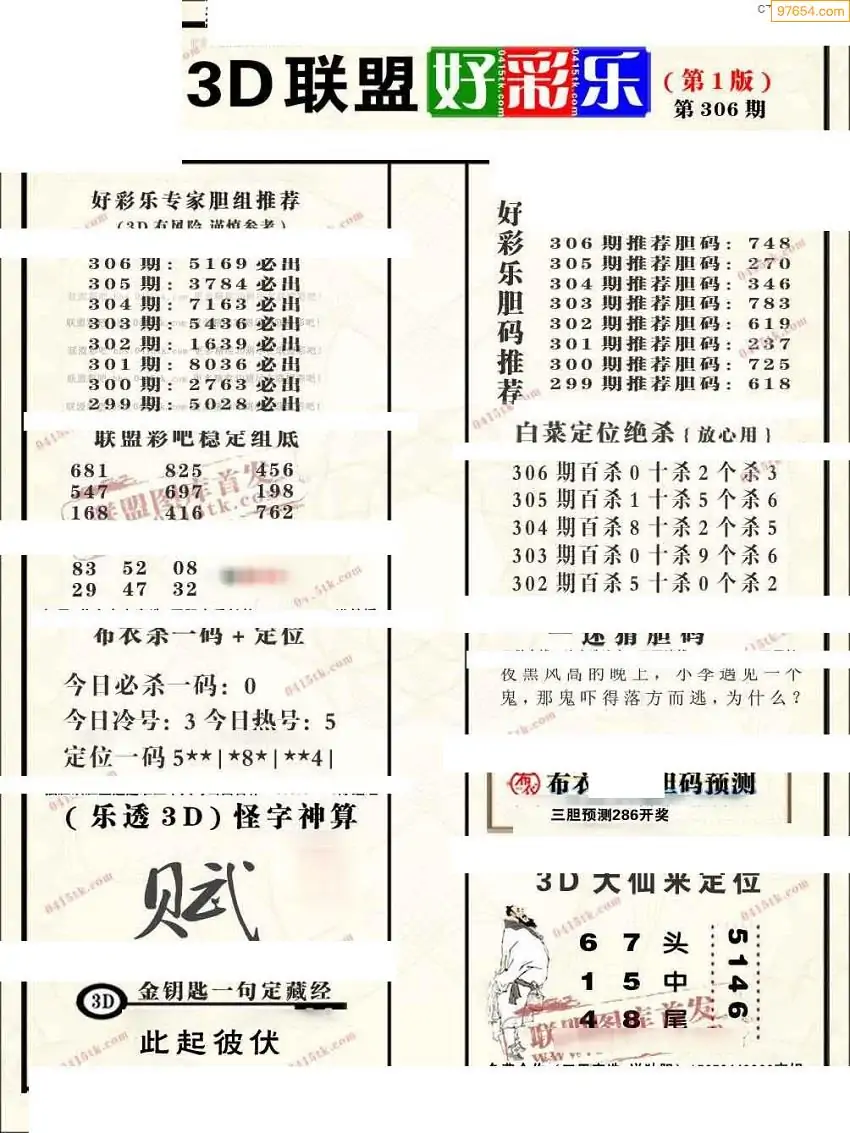 97654.com
3D联盟好彩乐
(第1版)
第306期
好彩乐专家胆组推荐
(3D有风险 谨慎参考)
306期: 5169必出
305期: 3784必出
304期: 7163必出
303期: 5436必出
302期: 1639必出
301期: 8036必出
300期: 2763必出
299期: 5028必出
联盟彩吧稳定组底
681 825 456
547 697 198
168 416 762
83 52 08
29 47 32
布衣杀一码+定位
今日必杀一码: 0
今日冷号: 3 今日热号: 5
定位一码 5**|*8*|**4|
(乐透3D)怪字神算
赋
3D 金钥匙一句定藏经
此起彼伏
好彩乐胆码推荐
306期推荐胆码: 748
305期推荐胆码: 270
304期推荐胆码: 346
303期推荐胆码: 783
302期推荐胆码: 619
301期推荐胆码: 237
300期推荐胆码: 725
299期推荐胆码: 618
白菜定位绝杀{放心用}
306期百杀0十杀2个杀3
305期百杀1十杀5个杀6
304期百杀8十杀2个杀5
303期百杀0十杀9个杀6
302期百杀5十杀0个杀2
一迷猜胆码
夜黑风高的晚上, 小李遇见一个
鬼,那鬼吓得落方而逃,为什么?
布衣 胆码预测
三胆预测286开奖
3D大仙来定位
6 7 头
1 5 中
4 8 尾
5146
联盟图库首发
0415tk.com